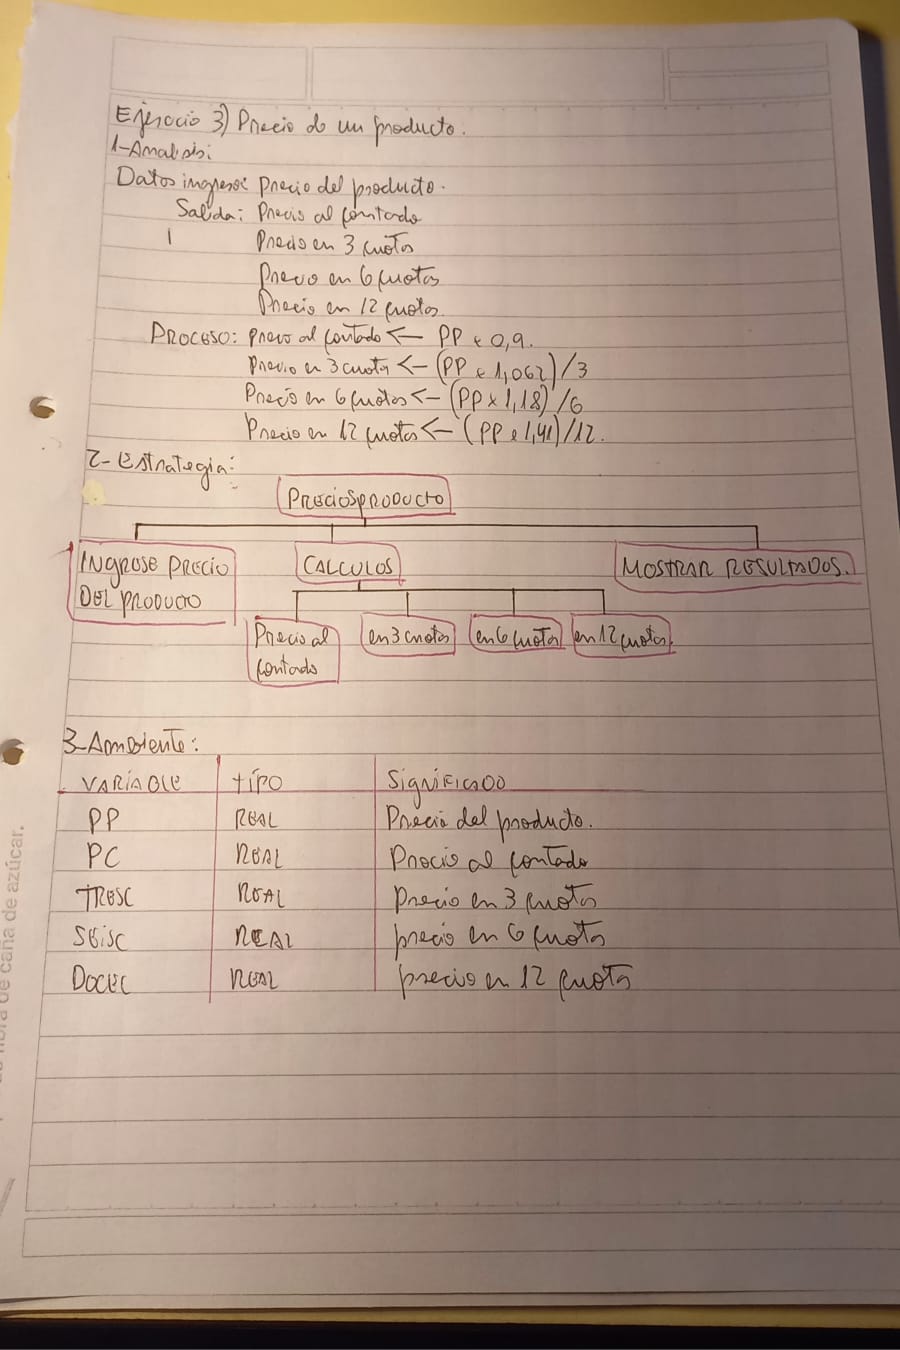 Ejercicio 3) Precio de un producto.
1-Analisis:
Datos ingreso: Precio del producto.
Salida: Precio al contado
Precio en 3 cuotas
Precio en 6 cuotas
Precio en 12 cuotas.
PROCESO: precio al contado ← PP x 0,9.
Precio en 3 cuotas ← (PP x 1,062)/3
Precio en 6 cuotas ← (PP x 1,18)/6
Precio en 12 cuotas ← (PP x 1,41)/12.
2-Estrategia:
PRECIOSPRODUCTO
INGRESE PRECIO DEL PRODUCTO
CALCULOS
MOSTRAR RESULTADOS.
Precio al contado
en 3 cuotas
en 6 cuotas
en 12 cuotas.
3-Ambiente:
VARIABLE TIPO SIGNIFICADO
PP REAL Precio del producto.
PC REAL Precio al contado
TRESC REAL precio en 3 cuotas
SEISC REAL precio en 6 cuotas
DOCEC REAL precio en 12 cuotas
de caña de azúcar.